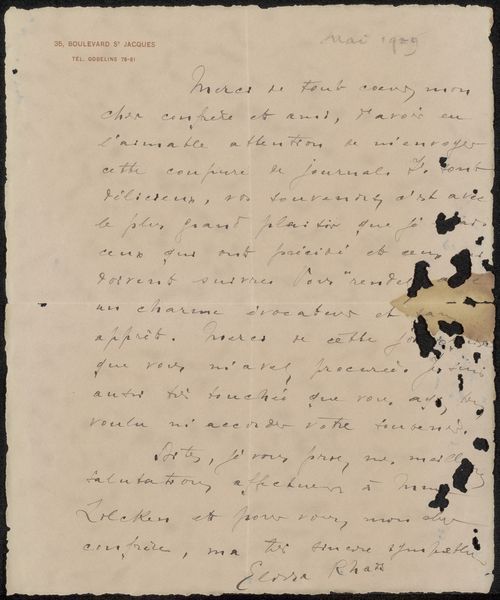 35, BOULEVARD ST JACQUES
TÉL. GOBELINS 78-81
Mai 1929
Merci de tout cœur, mon
cher confrère et ami, d'avoir eu
l'aimable attention de m'envoyer
cette coupure de journal. Ils sont
délicieux, vos souvenirs, c'est avec
le plus grand plaisir que je
ceux qui ont précédé et ceux
doivent suivre. Vous rendez
un charme évocateur et sans
apprêt. Merci de cette
que vous m'avez procurée. Je suis
aussi très touchée que vous ayez
voulu m'accorder votre souvenir.
Dites, je vous prie, mes meilleures
salutations affectueuses à Mme
Zilcken et pour vous, mon cher
confrère, ma très sincère sympathie
Elissa Rhaïs